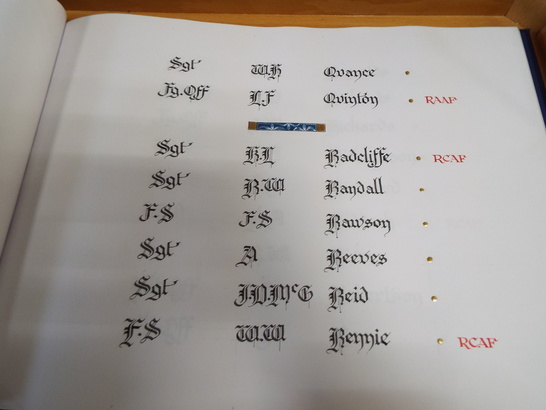 Sgt W H Quance
Fg.Off L F Quinton RAAF
Sgt R L Radcliffe RCAF
Sgt R.W Randall
F.S F.S Rawson
Sgt A Reeves
Sgt J D McG Reid
F.S W.W Rennie RCAF